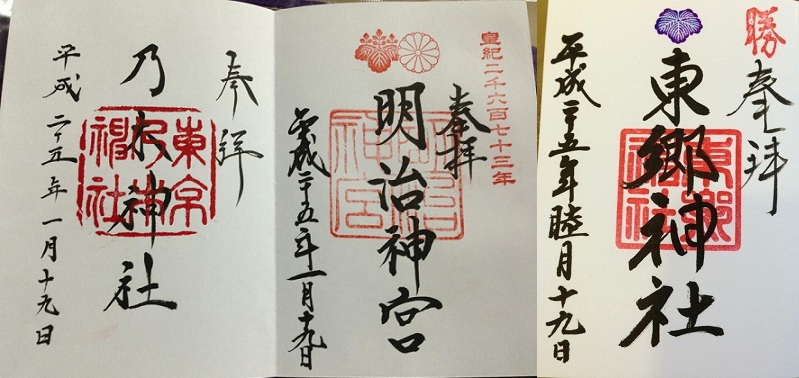 勝
奉拝
東郷神社
東郷神社
平成二十五年睦月十九日
皇紀二千六百七十三年
奉拝
明治神宮
明治神宮
平成二十五年一月十九日
奉拝
乃木神社
東京乃木神社
平成二十五年一月十九日